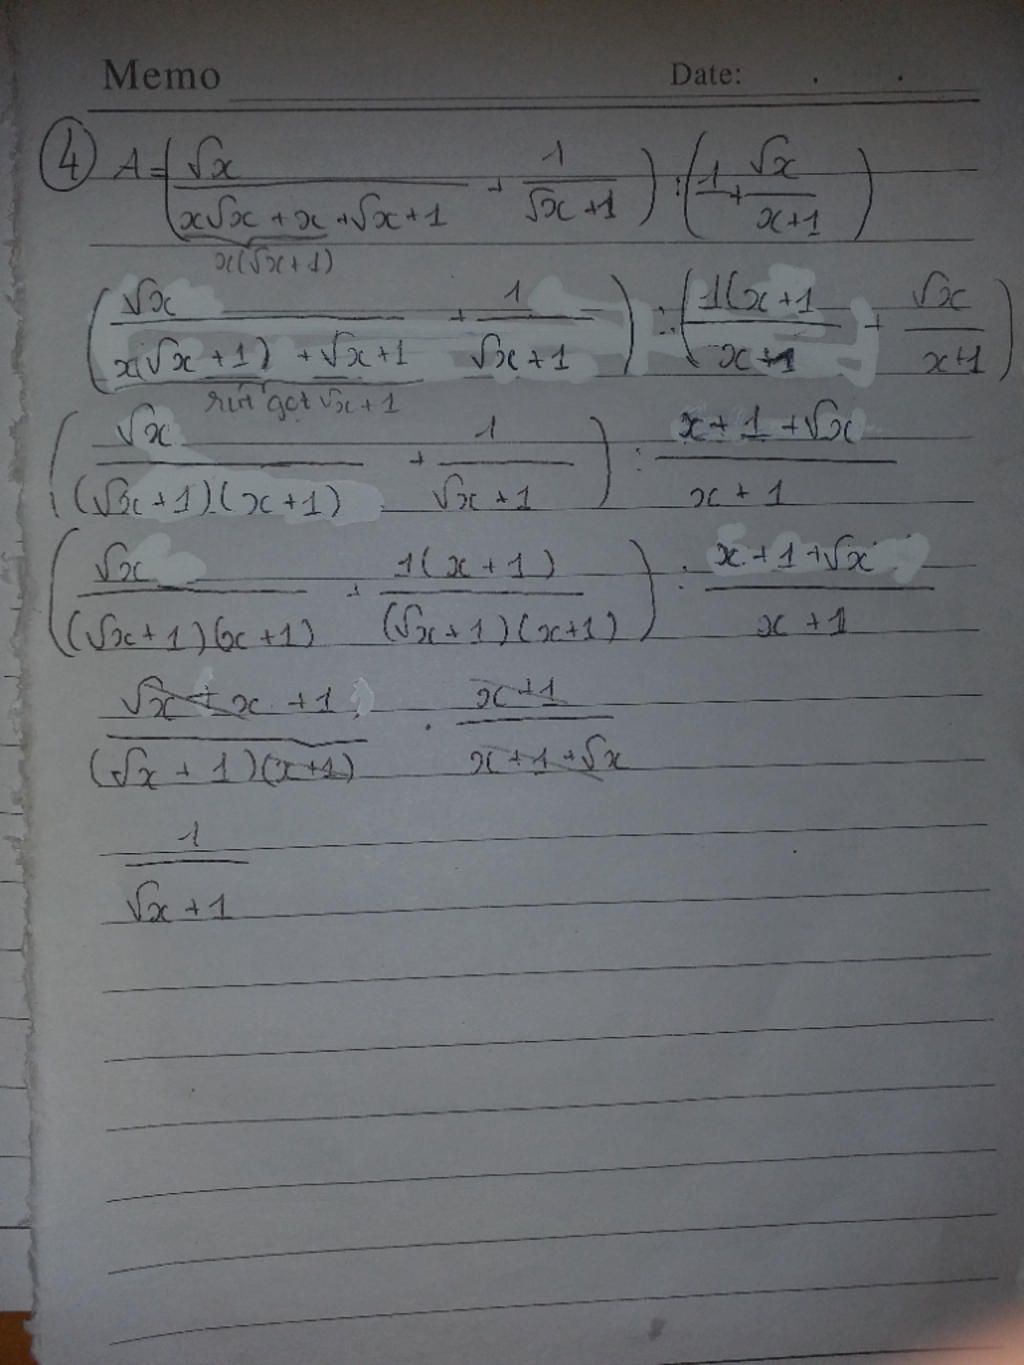 Memo Date: . .
④ A = (√x / (x√x + x + √x + 1) + 1 / (√x + 1)) : (1 + √x / (x + 1))
x(√x + 1)
(√x / (x(√x + 1) + √x + 1) + 1 / (√x + 1)) : (1(x + 1 / (x + 1) + √x / (x + 1))
rút gọt √x + 1
(√x / ((√x + 1)(x + 1)) + 1 / (√x + 1)) : (x + 1 + √x) / (x + 1)
(√x / ((√x + 1)(x + 1)) + 1(x + 1) / ((√x + 1)(x + 1))) : (x + 1 + √x) / (x + 1)
(√x + x + 1) / ((√x + 1)(x + 1)) . (x + 1) / (x + 1 + √x)
1 / (√x + 1)